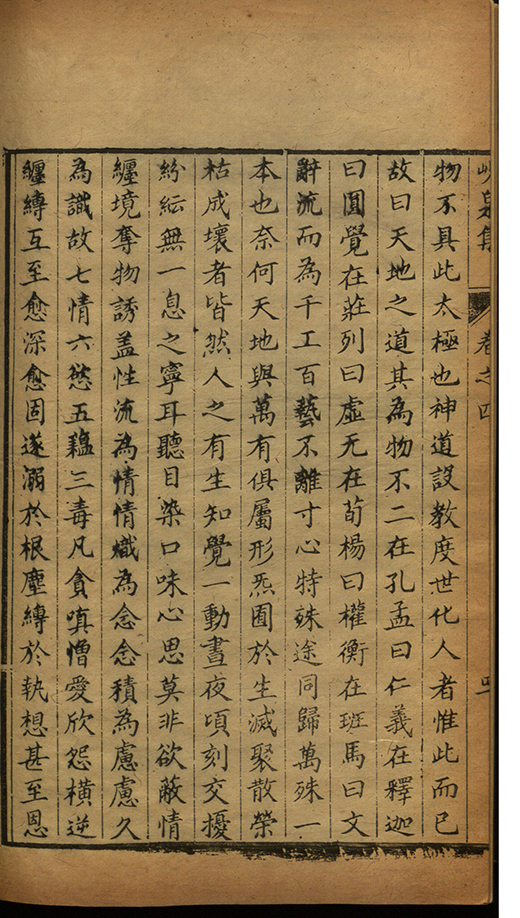 峴泉集 卷之四
物不具此太極也神道設教度世化人者惟此而已
故曰天地之道其為物不二在孔孟曰仁義在釋迦
曰圓覺在莊列曰虛无在荀楊曰權衡在班馬曰文
辭流而為千工百藝不離寸心特殊途同歸萬殊一
本也奈何天地與萬有俱屬形炁囿於生滅聚散榮
枯成壞者皆然人之有生知覺一動晝夜頃刻交擾
紛紜無一息之寧耳聽目染口味心思莫非欲蔽情
纏境奪物誘盖性流為情情熾為念念積為慮慮久
為識故七情六慾五蘊三毒凡貪嗔憎愛欣怨橫逆
纏縳互至愈深愈固遂溺於根塵縳於執想甚至恩